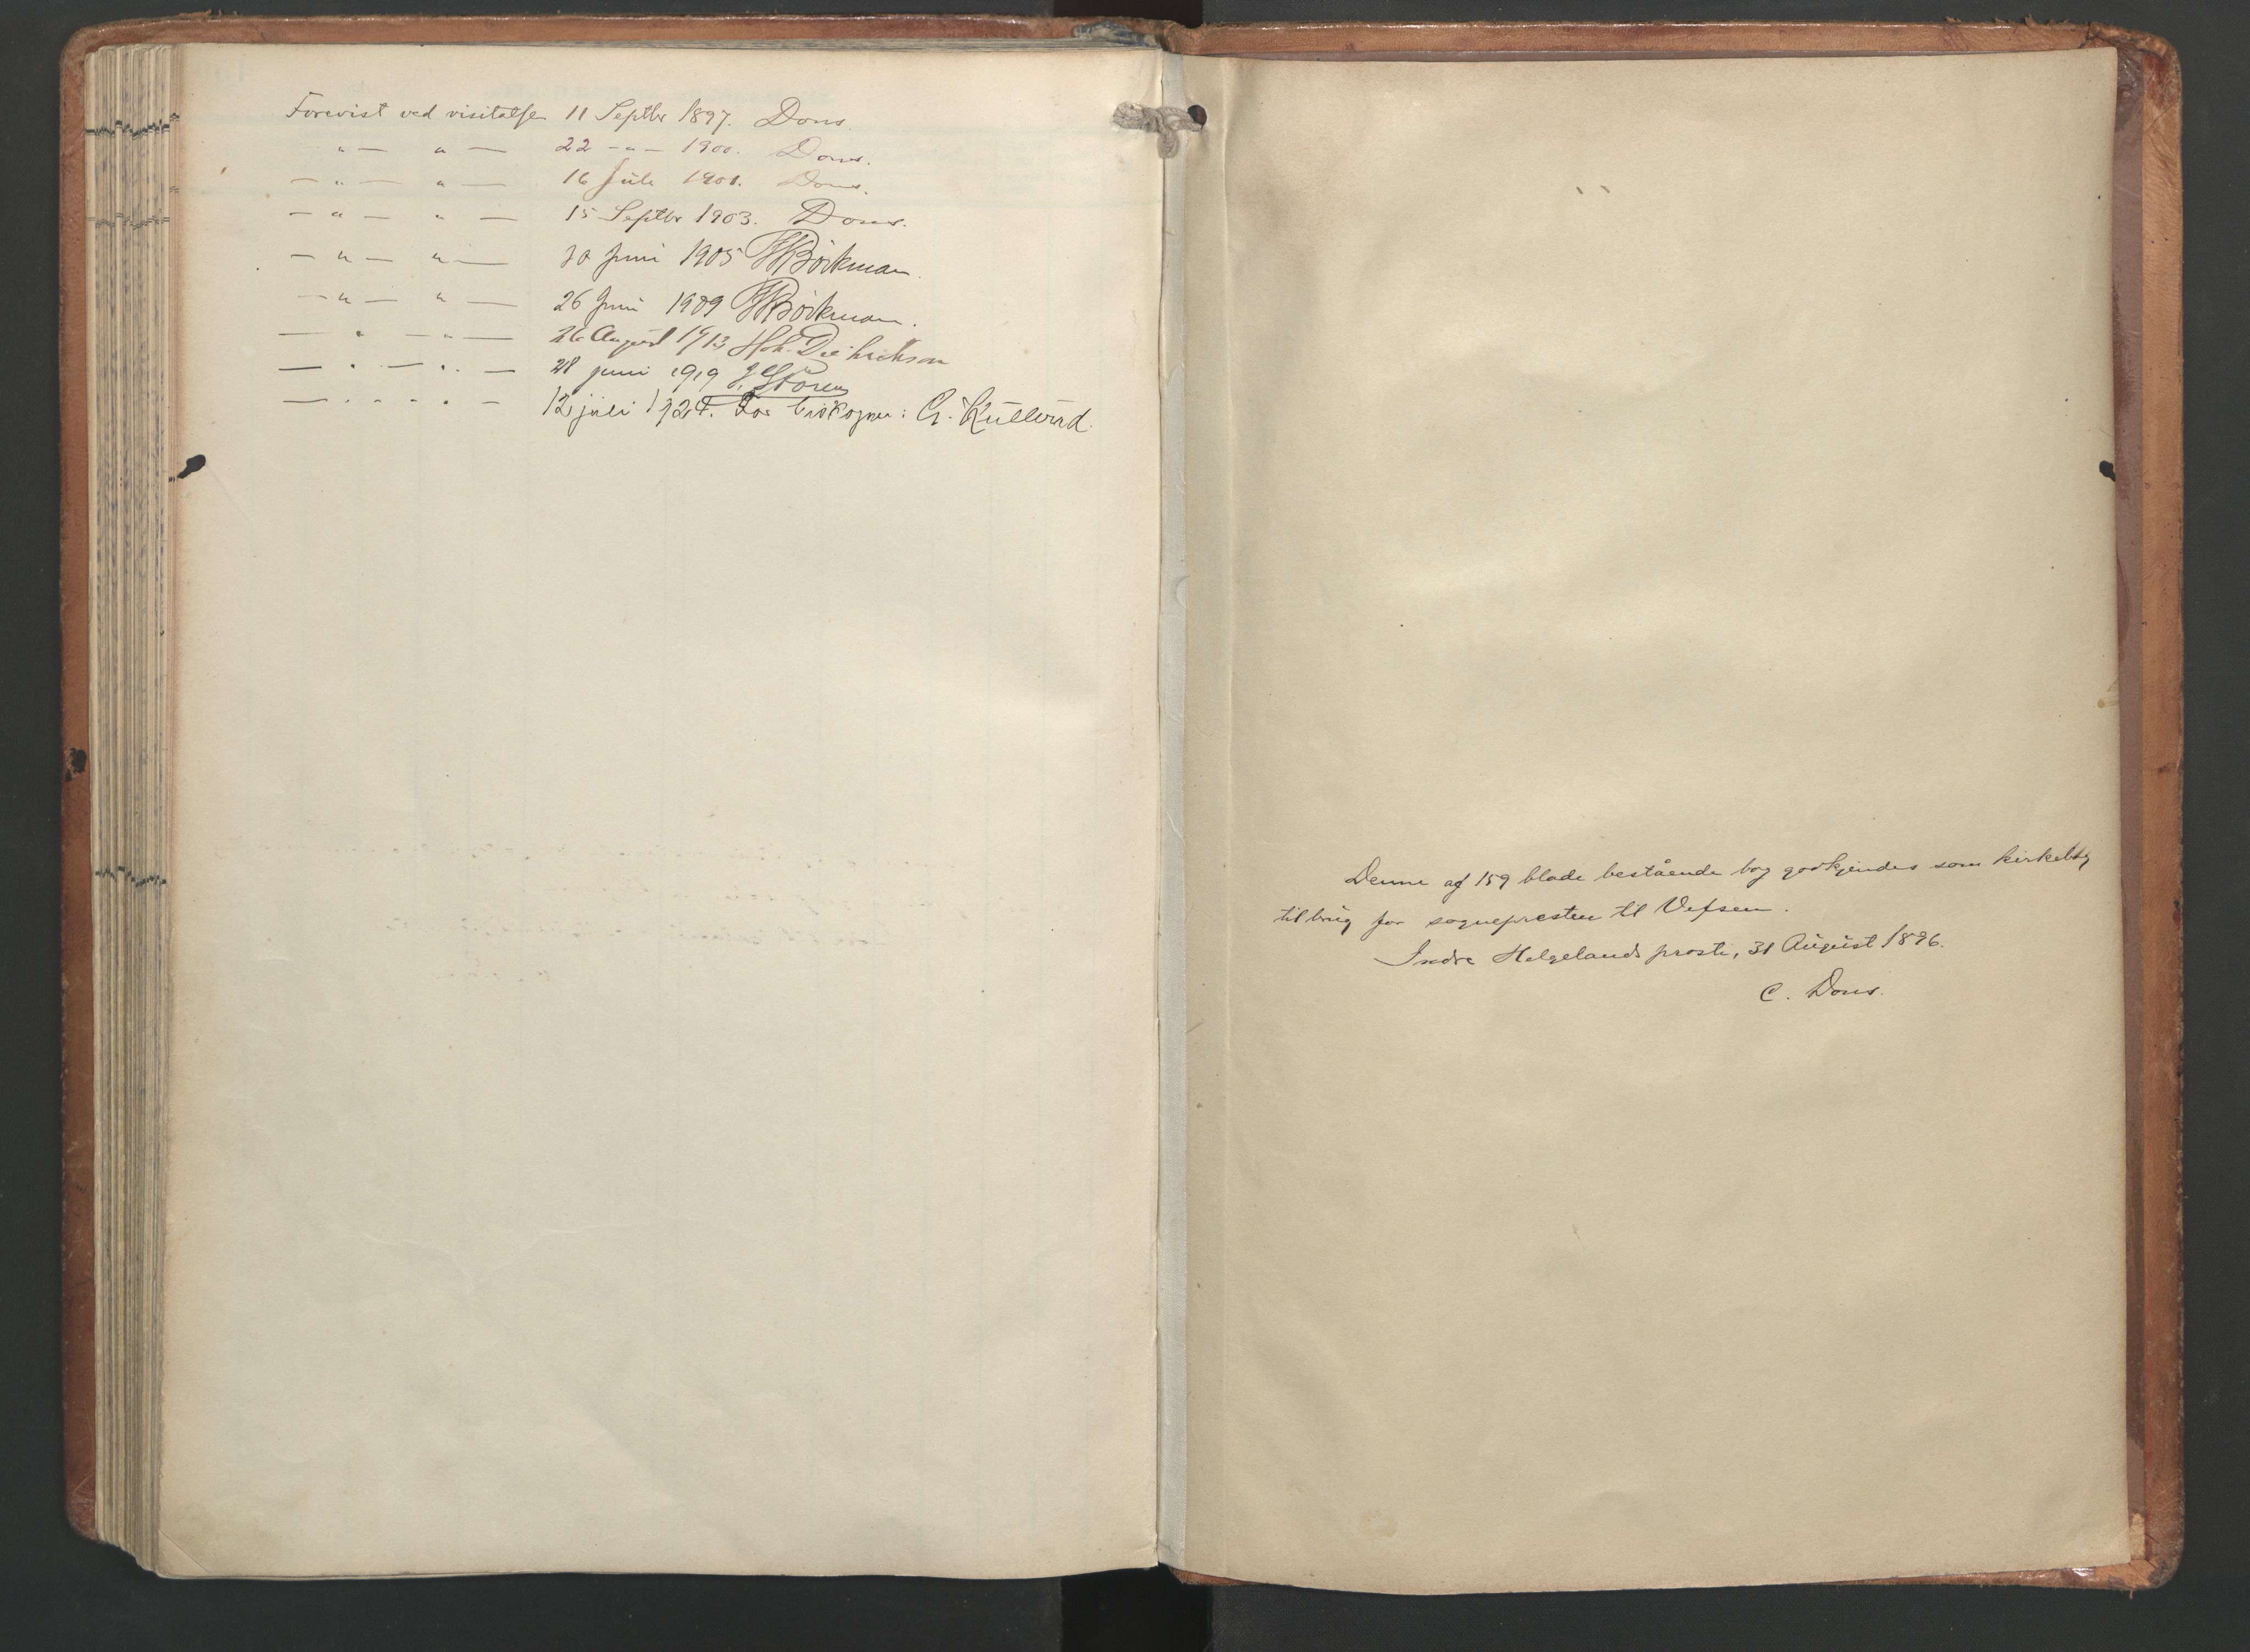 Forevist ved visitatsen 11 Septbr 1897. Dons.
" — " — 22 - " - 1900. Dons.
— " — " — 16 Juli 1901. Dons.
— " — " — 15 Septbr 1903. Dons.
— " — " — 30 Juni 1905 Böckman.
— " — " — 26 Juni 1909 Böckman.
— " — " — 26 August 1913
— " — " — 28 juni 1919 Støren
— " — " — 12 juli 1924. For biskopen: G. Kullerud.
Denne af 159 blade bestående bog godkjendes som kirkebog
til brug for sognepresten til Vefsen.
Indre Helgelands prosti, 31 August 1896.
C. Dons.